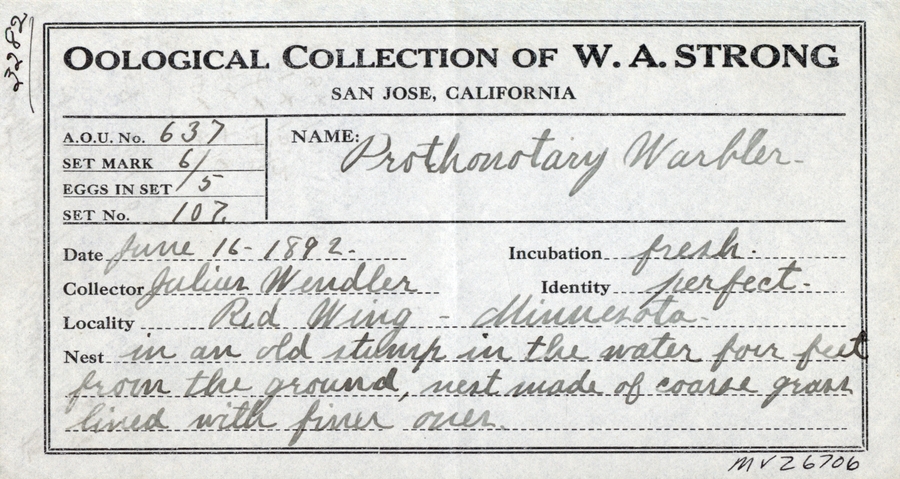 3282
OOLOGICAL COLLECTION OF W. A. STRONG
SAN JOSE, CALIFORNIA
A.O.U. No. 637
SET MARK 6/
EGGS IN SET /5
SET No. 107.
NAME: Prothonotary Warbler-
Date June 16-1892.
Incubation fresh.
Collector Julius Wendler
Identity perfect-
Locality Red Wing - Minnesota-
Nest in an old stump in the water four feet
from the ground, nest made of coarse grass
lined with finer ones.
MVZ6706